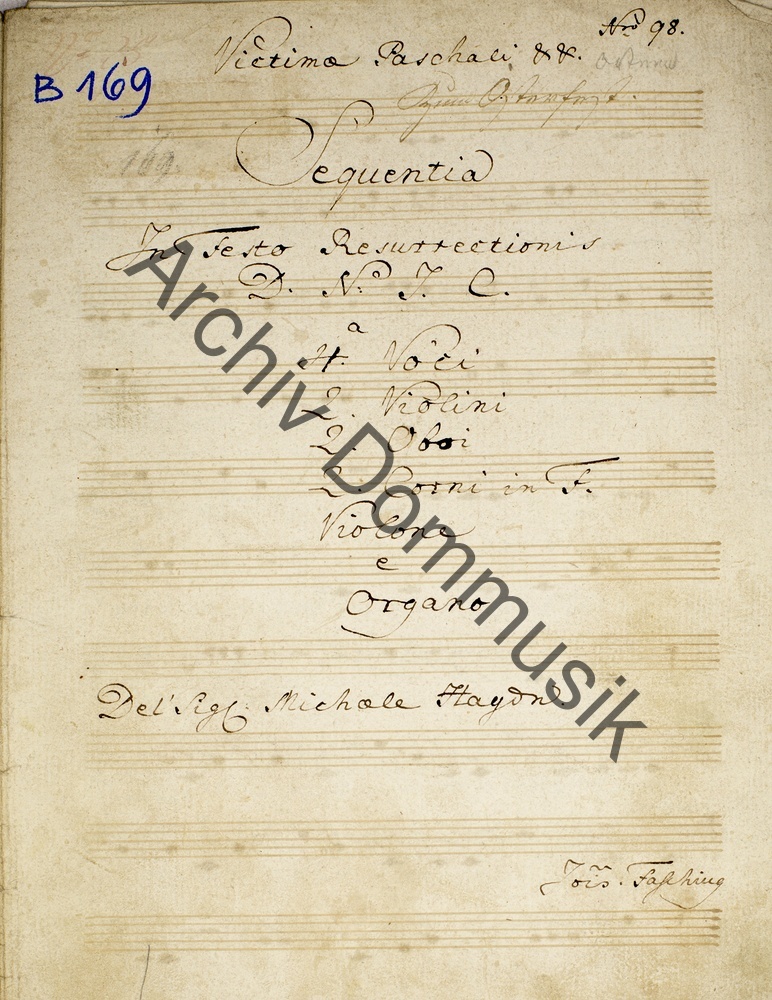 Nrò 98.
Victimæ Paschali &&. Ostern
B 169
Zum Osterfest.
169.
Sequentia
In Festo Resurrectionis
D. N.º J. C.
a
4. Voci
2. Violini
2. Oboi
2. Corni in F.
Violone
e
Organo
Del' Sigl: Michæle Haydn
Jois. Fasching
Archiv Dommusik